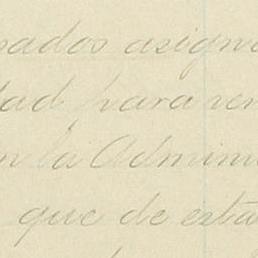 sados asigna
dad para ren
en la Admini
que de esta